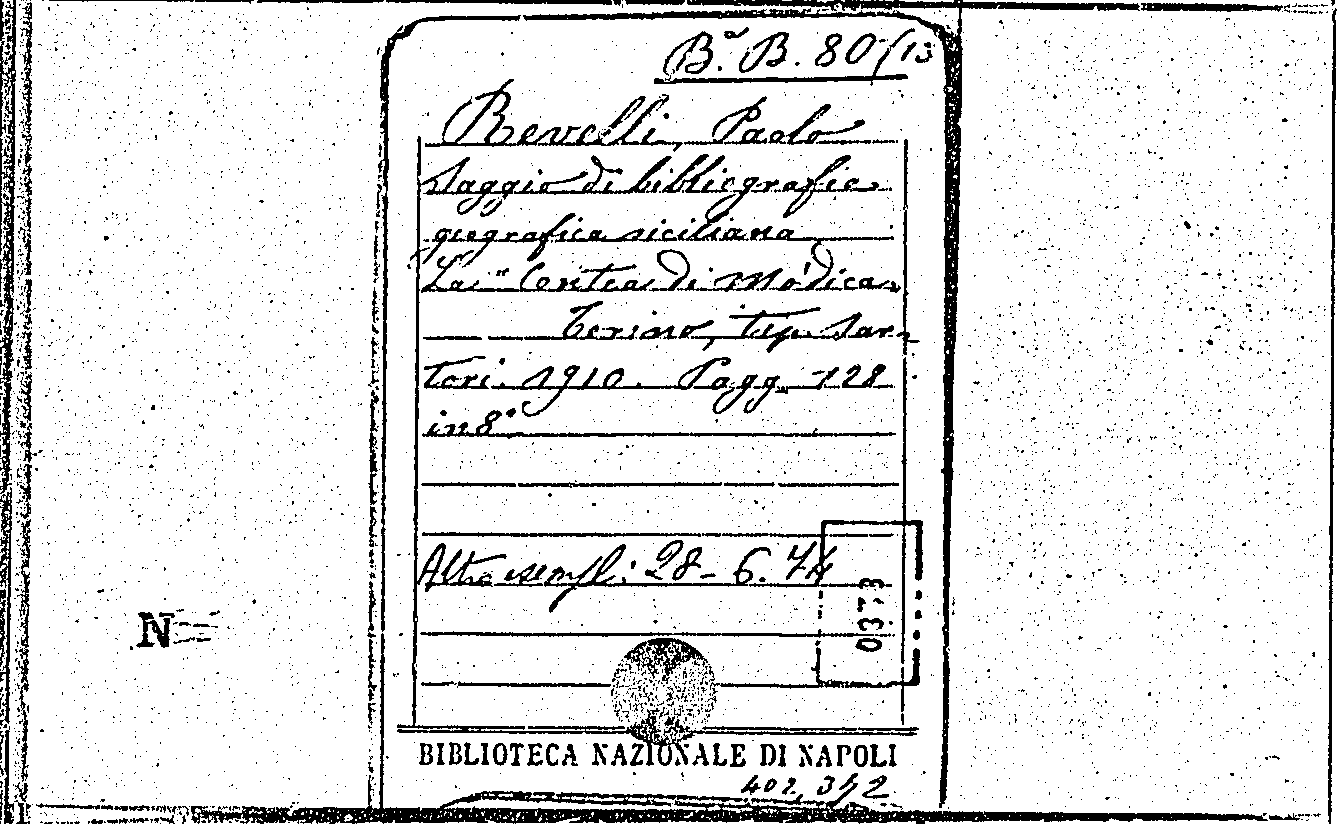 Bª B. 80/13
Revelli, Paolo
Saggio di bibliografia
geografica siciliana
La "Contea di Mòdica
Torino, tip. Sar-
tori. 1910. Pagg. 128
in 8°
Altro esempl: 28-6.44
0373
N
BIBLIOTECA NAZIONALE DI NAPOLI
402,342